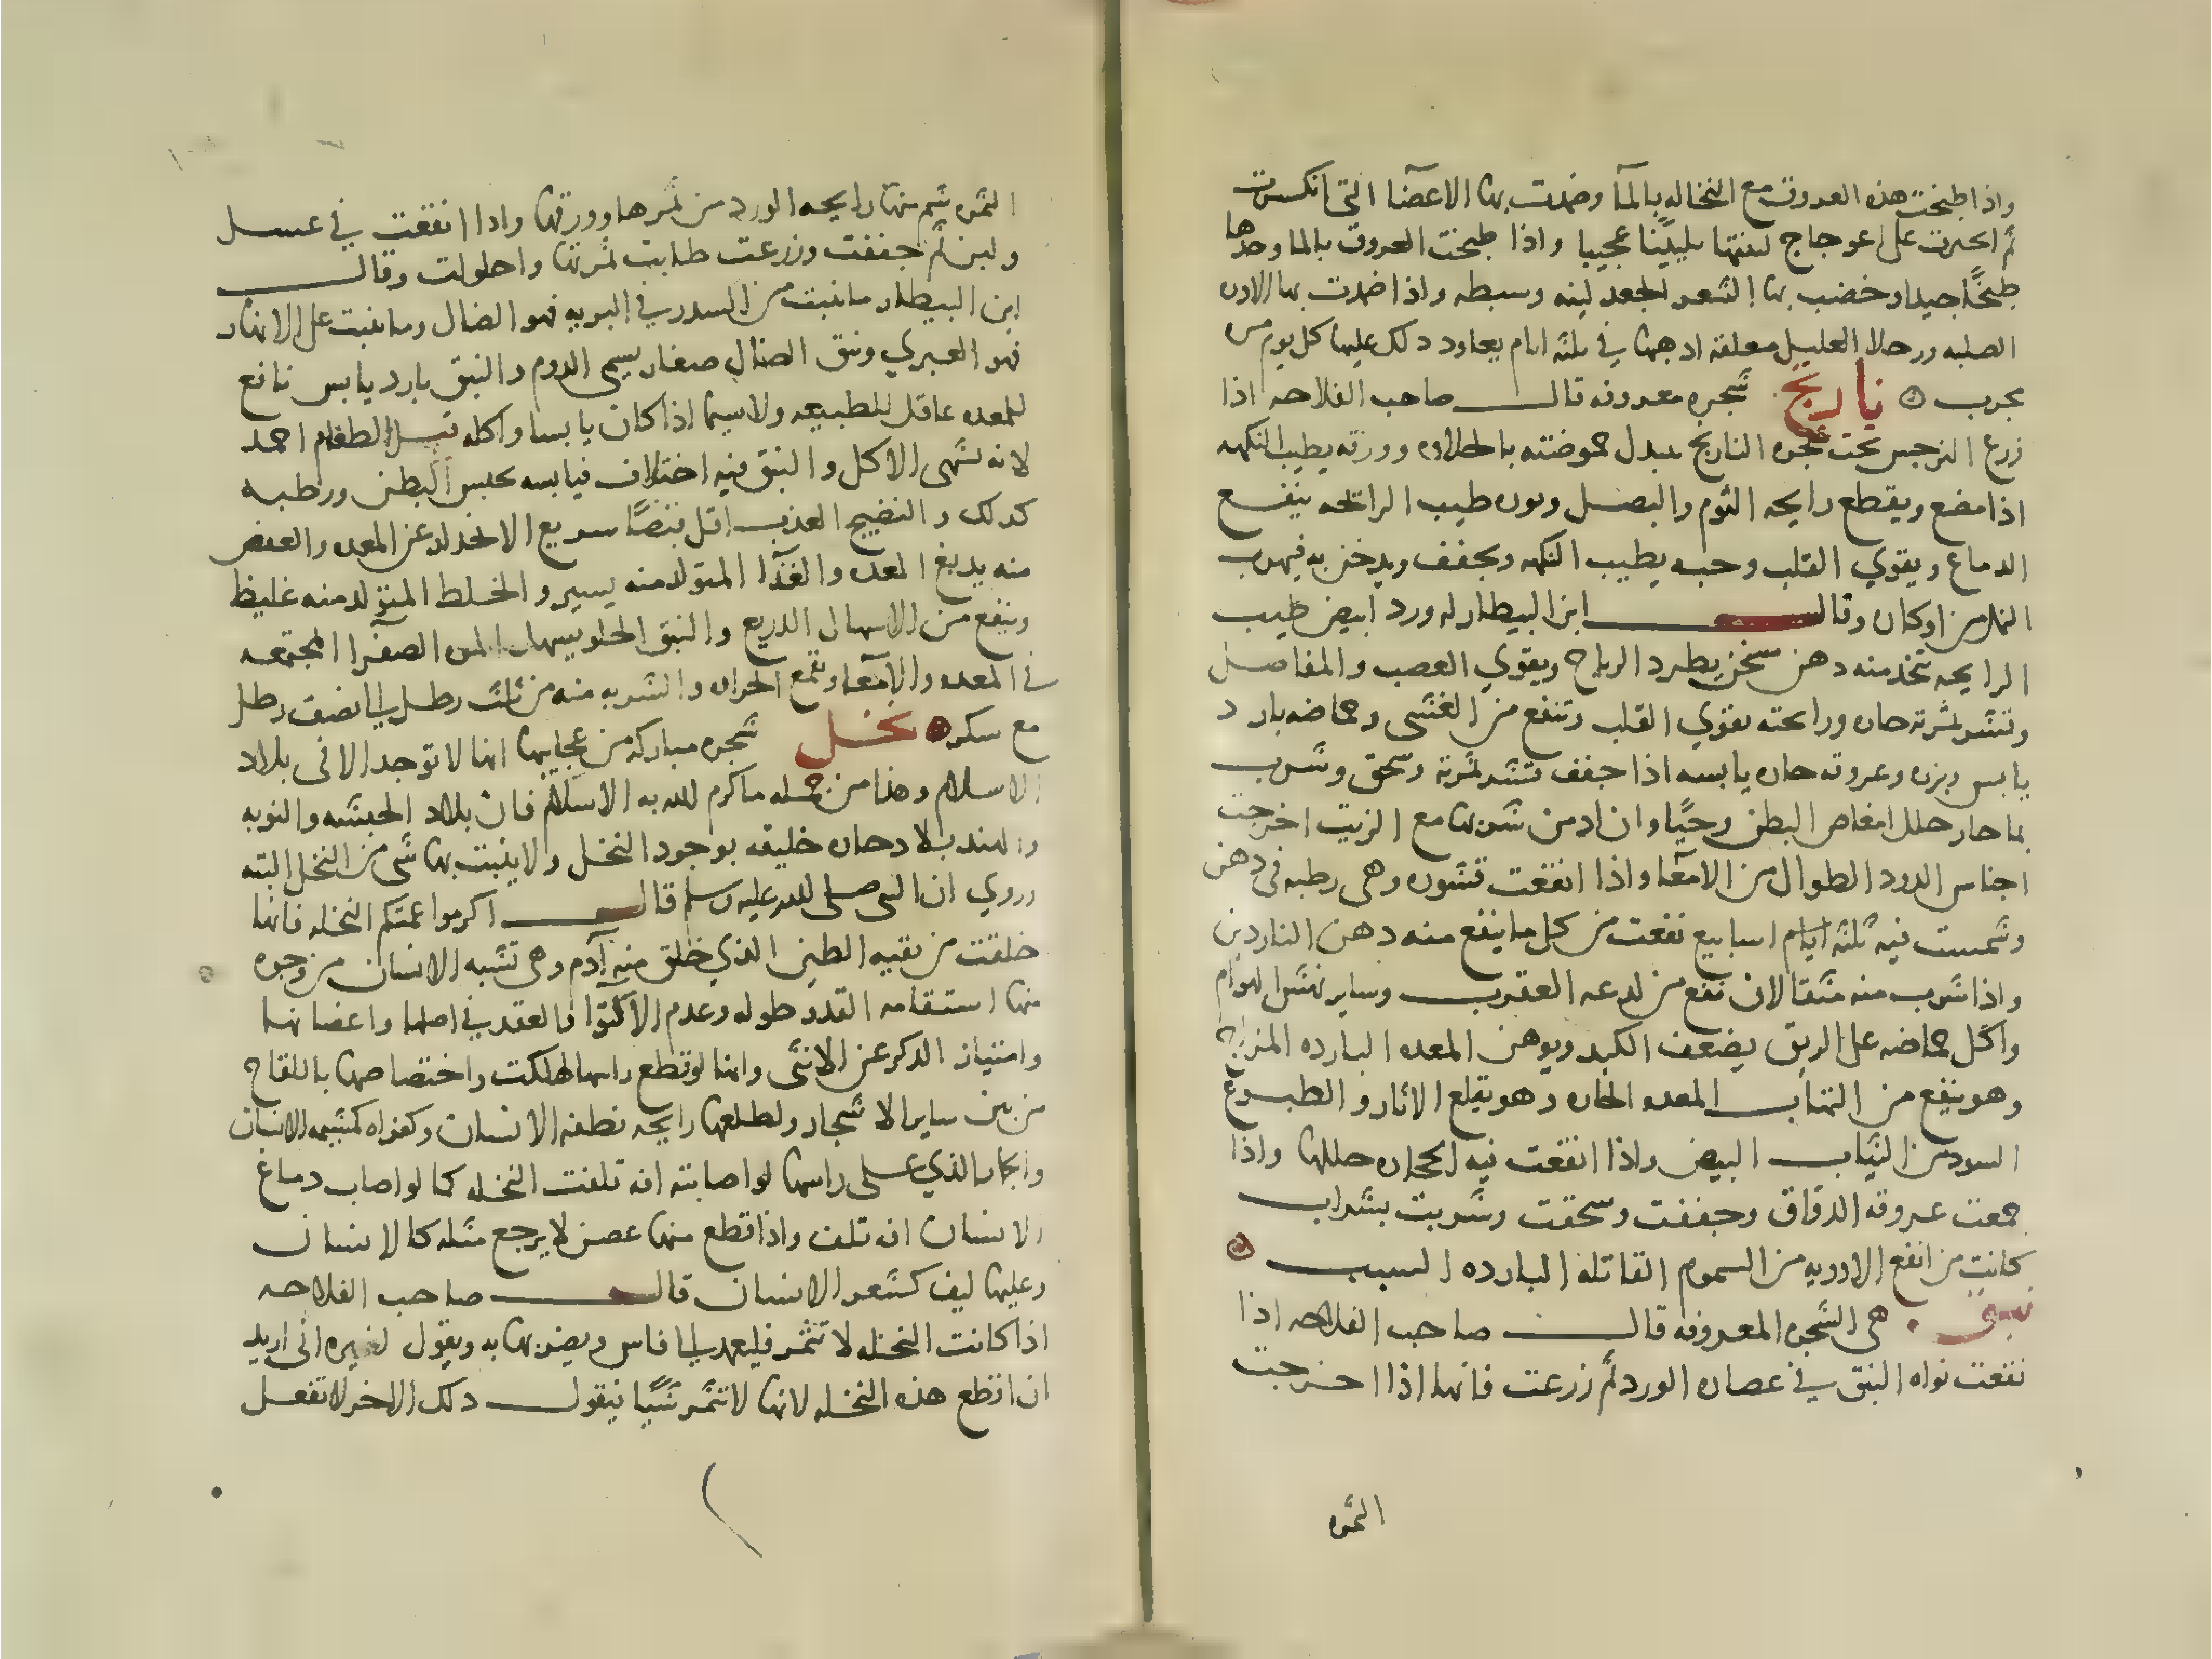 واذا طبخت هذه العروق مع النخاله بالمآ وضمدت بها الاعضآ التى انكسرت
ثم انجبرت على اعوجاج لينتها تليينا عجيبا واذا طبخت العروق بالما وحدها
طبخًا جيدا وخضب بها الشعر الجعد لينه وسبطه واذا ضمدت بها الاورام
الصلبه ورجلا العليل معلقه اذهبها في ثلثه ايام يعاود ذلك عليها كل يوم مره
مجرب نارنج شجره معروفه قال صاحب الفلاحه اذا
زرع النرجس تحت شجره النارنج تبدل حموضته بالحلاوه وورقه يطيب النكهه
اذا مضغ ويقطع رايحه الثوم والبصل ونوره طيب الرائحه ينفع
الدماغ ويقوي القلب وحبه يطيب النكهه ويجفف ويدخن به فيهرب
النمل من اوكان وقال ابن البيطار له ورد ابيض طيب
الرايحه يتخذ منه دهن سخن يطرد الرياح ويقوي العصب والمفاصل
وقشر ثمرته حاره ورائحته تقوي القلب وتنفع من الغشى وحماضه بارد
يابس وبزره وعروقه حاره يابسه اذا جفف قشر ثمرته وسحق وشرب
بما حار حلل امغاص البطن وحيًا وان ادمن شربها مع الزيت اخرجت
اجناس الدود الطوال من الامعآ واذا انقعت قشوره وهى رطبه فى دهن
وشمست فيه ثلثه ايام اسابيع نفعت من كل ما ينفع منه دهن الناردين
واذا شرب منه مثقالان نفع من لدغه العقرب وساير نهش الهوام
واكل حماضه على الريق يضعف الكبد ويوهن المعده البارده المزاج
وهو ينفع من التهاب المعده الحاره وهو يقلع الاثار والطبوع
السود من الثياب البيض واذا انقعت فيه الحجاره حللها واذا
جمعت عروقه الدقاق وجففت وسحقت وشربت بشراب
كانت من انفع الادويه من السموم القاتله البارده السبب
نبق هى الشجره المعروفه قال صاحب الفلاحه اذا
نقعت نواه النبق في عصاره الورد ثم زرعت فانها اذا اخرجت
الثمره
الثمره شم منها رايحه الورد من ثمرها وورقها واذا انقعت في عسل
ولبن ثم جففت وزرعت طابت ثمرتها واحلولت وقال
ابن البيطار ما نبت من السدر في البريه فهو الضال وما نبت على الانهار
فهو العبري ونبق الضال صغار يسمى الدوم والنبق بارد يابس نافع
للمعده عاقل للطبيعه ولا سيما اذا كان يابسا واكله قبل الطعام احمد
لانه يشهى الاكل والنبق فيه اختلاف فيابسه يحبس البطن ورطبه
كذلك والنضيج العذب اقل قبضًا سريع الانحدار عن المعده والعفص
منه يدبغ المعده والغذآ المتولد منه يسير والخلط المتولد منه غليظ
وينفع من الاسهال الذريع والنبق الحلو يسهل المره الصفرا المجتمعه
في المعده والامعآ ويقمع الحراره والشربه منه من ثلث رطل الى نصف رطل
مع سكر نخل شجره مباركه من عجايبها انها لا توجد الا فى بلاد
الاسلام وهذا من جمله ما اكرم الله به الاسلام فان بلاد الحبشه والنوبه
والهند بلاد حاره خليقه بوجود النخل ولا ينبت بها شى من النخل البته
وروي ان النبى صلى الله عليه وسلم قال اكرموا عمتكم النخله فانها
خلقت من بقيه الطين الذي خلق منه آدم وهى تشبه الانسان من وجوه
منها استقامه القد وطوله وعدم الالتوآ والعقد في اصلها واعضانها
وامتياز الذكر عن الانثى وانها لو قطع راسها هلكت واختصاصها باللقاح
من بين ساير الاشجار ولطلعها رايحه نطفه الانسان وكفراه كمشيمه الانسان
والجمار الذي على راسها لو اصابته افه تلفت النخله كما لو اصاب دماغ
الانسان افه تلف واذا قطع منها غصن لا يرجع مثله كالانسان
وعليها ليف كشعر الانسان قال صاحب الفلاحه
اذا كانت النخله لا تثمر فليعمد الى فاس ويضربها به ويقول لغيره انى اريد
ان اقطع هذه النخله لانها لا تثمر شيًا فيقول ذلك الاخر لا تفعل